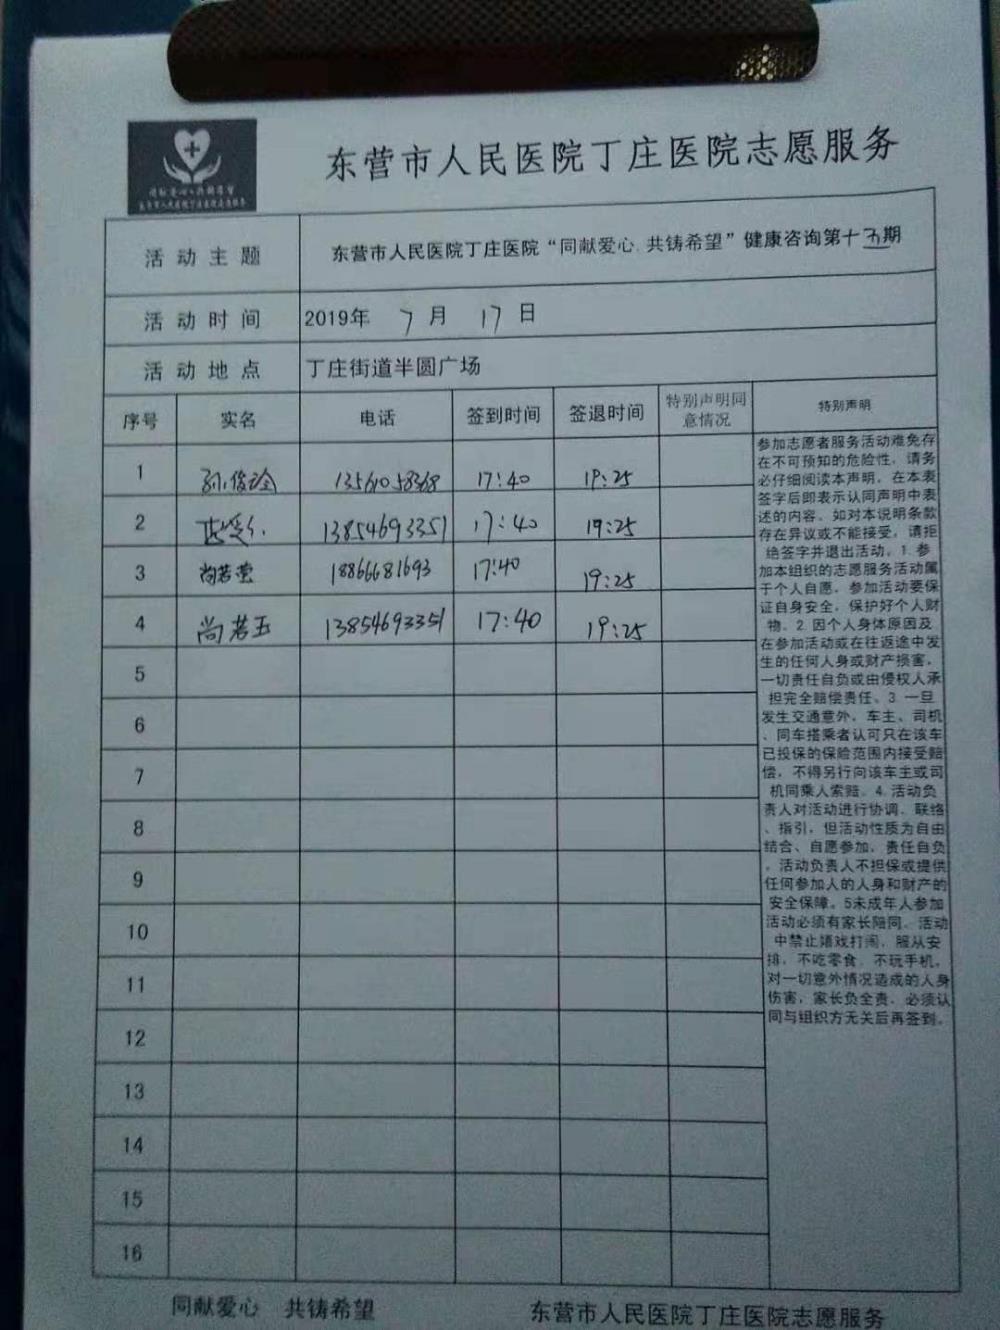 同献爱心 共铸希望
东营市人民医院丁庄医院志愿服务
东营市人民医院丁庄医院志愿服务
活动主题 东营市人民医院丁庄医院“同献爱心.共铸希望”健康咨询第十五期
活动时间 2019年 7 月 17 日
活动地点 丁庄街道半圆广场
序号 实名 电话 签到时间 签退时间 特别声明同意情况 特别声明
1 孙俊玲 13561058368 17:40 19:25
2 13854693351 17:40 19:25
3 尚若莹 18866681693 17:40 19:25
4 尚若玉 13854693351 17:40 19:25
5
6
7
8
9
10
11
12
13
14
15
16
参加志愿者服务活动难免存
在不可预知的危险性，请务
必仔细阅读本声明，在本表
签字后即表示认同声明中表
述的内容。如对本说明条款
存在异议或不能接受，请拒
绝签字并退出活动。1.参
加本组织的志愿服务活动属
于个人自愿，参加活动要保
证自身安全，保护好个人财
物。2.因个人身体原因及
在参加活动或在往返途中发
生的任何人身或财产损害，
一切责任自负或由侵权人承
担完全赔偿责任。3.一旦
发生交通意外，车主、司机
、同车搭乘者认可只在该车
已投保的保险范围内接受赔
偿，不得另行向该车主或司
机同乘人索赔。4.活动负
责人对活动进行协调、联络
、指引，但活动性质为自由
结合、自愿参加，责任自负
，活动负责人不担保或提供
任何参加人的人身和财产的
安全保障。5未成年人参加
活动必须有家长陪同。活动
中禁止嬉戏打闹，服从安
排，不吃零食，不玩手机，
对一切意外情况造成的人身
伤害，家长负全责，必须认
同与组织方无关后再签到。
同献爱心 共铸希望 东营市人民医院丁庄医院志愿服务